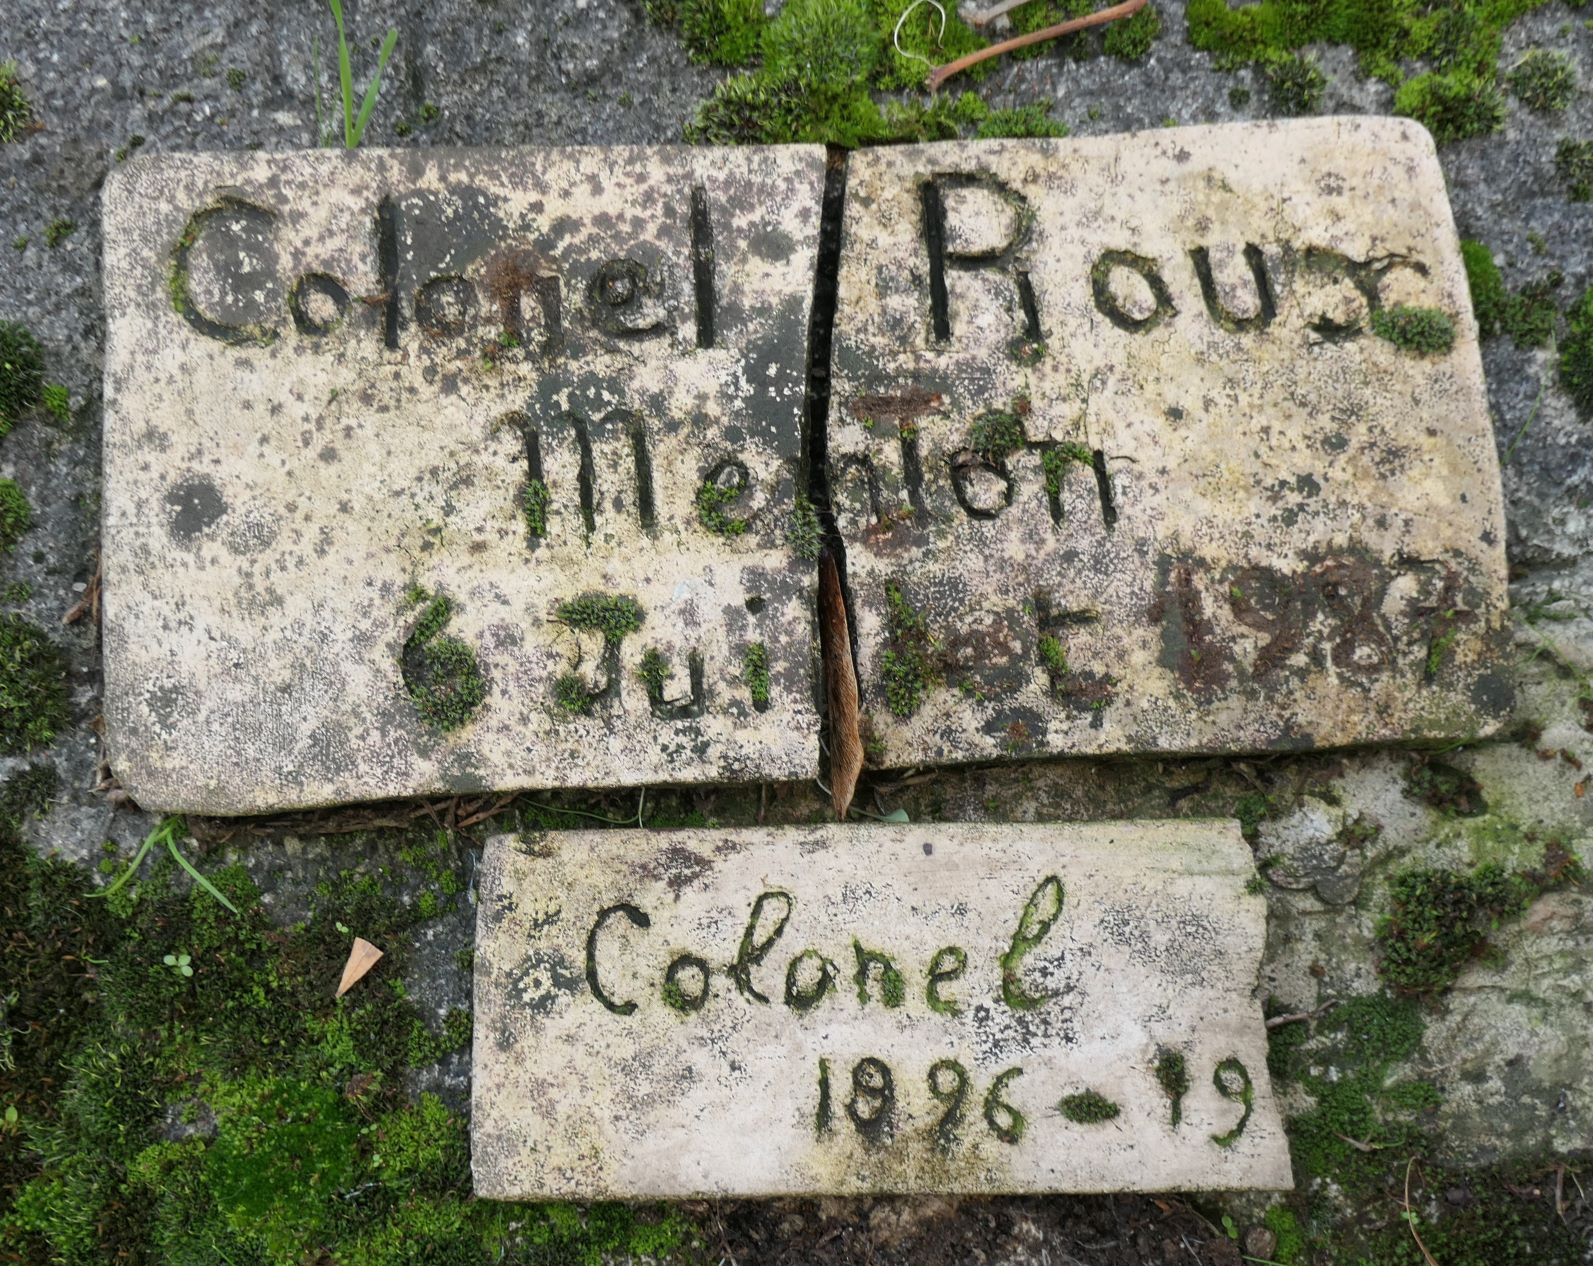 Colonel Roux
Menton
6 Juillet 1987
Colonel
1896-19